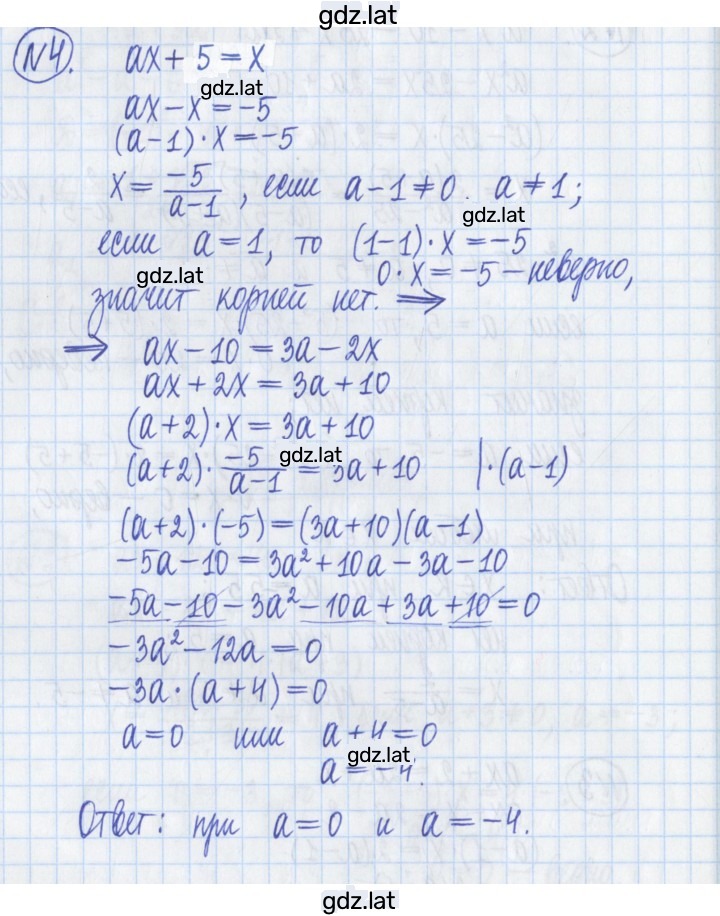 gdz.lat
№4. ax + 5 = x
gdz.lat
ax − x = −5
(a−1)·x = −5
x = −5/(a−1), если a−1≠0. a≠1;
gdz.lat
если a=1, то (1−1)·x = −5
gdz.lat
0·x = −5 – неверно,
значит корней нет. ⇒
⇒ ax − 10 = 3a − 2x
ax + 2x = 3a + 10
(a+2)·x = 3a + 10
gdz.lat
(a+2)· −5/(a−1) = 3a + 10 |·(a−1)
(a+2)·(−5) = (3a+10)(a−1)
−5a − 10 = 3a² + 10a − 3a − 10
−5a − 10 − 3a² − 10a + 3a + 10 = 0
−3a² − 12a = 0
−3a·(a+4) = 0
a = 0 или a + 4 = 0
gdz.lat
a = −4.
Ответ: при a = 0 и a = −4.
gdz.lat